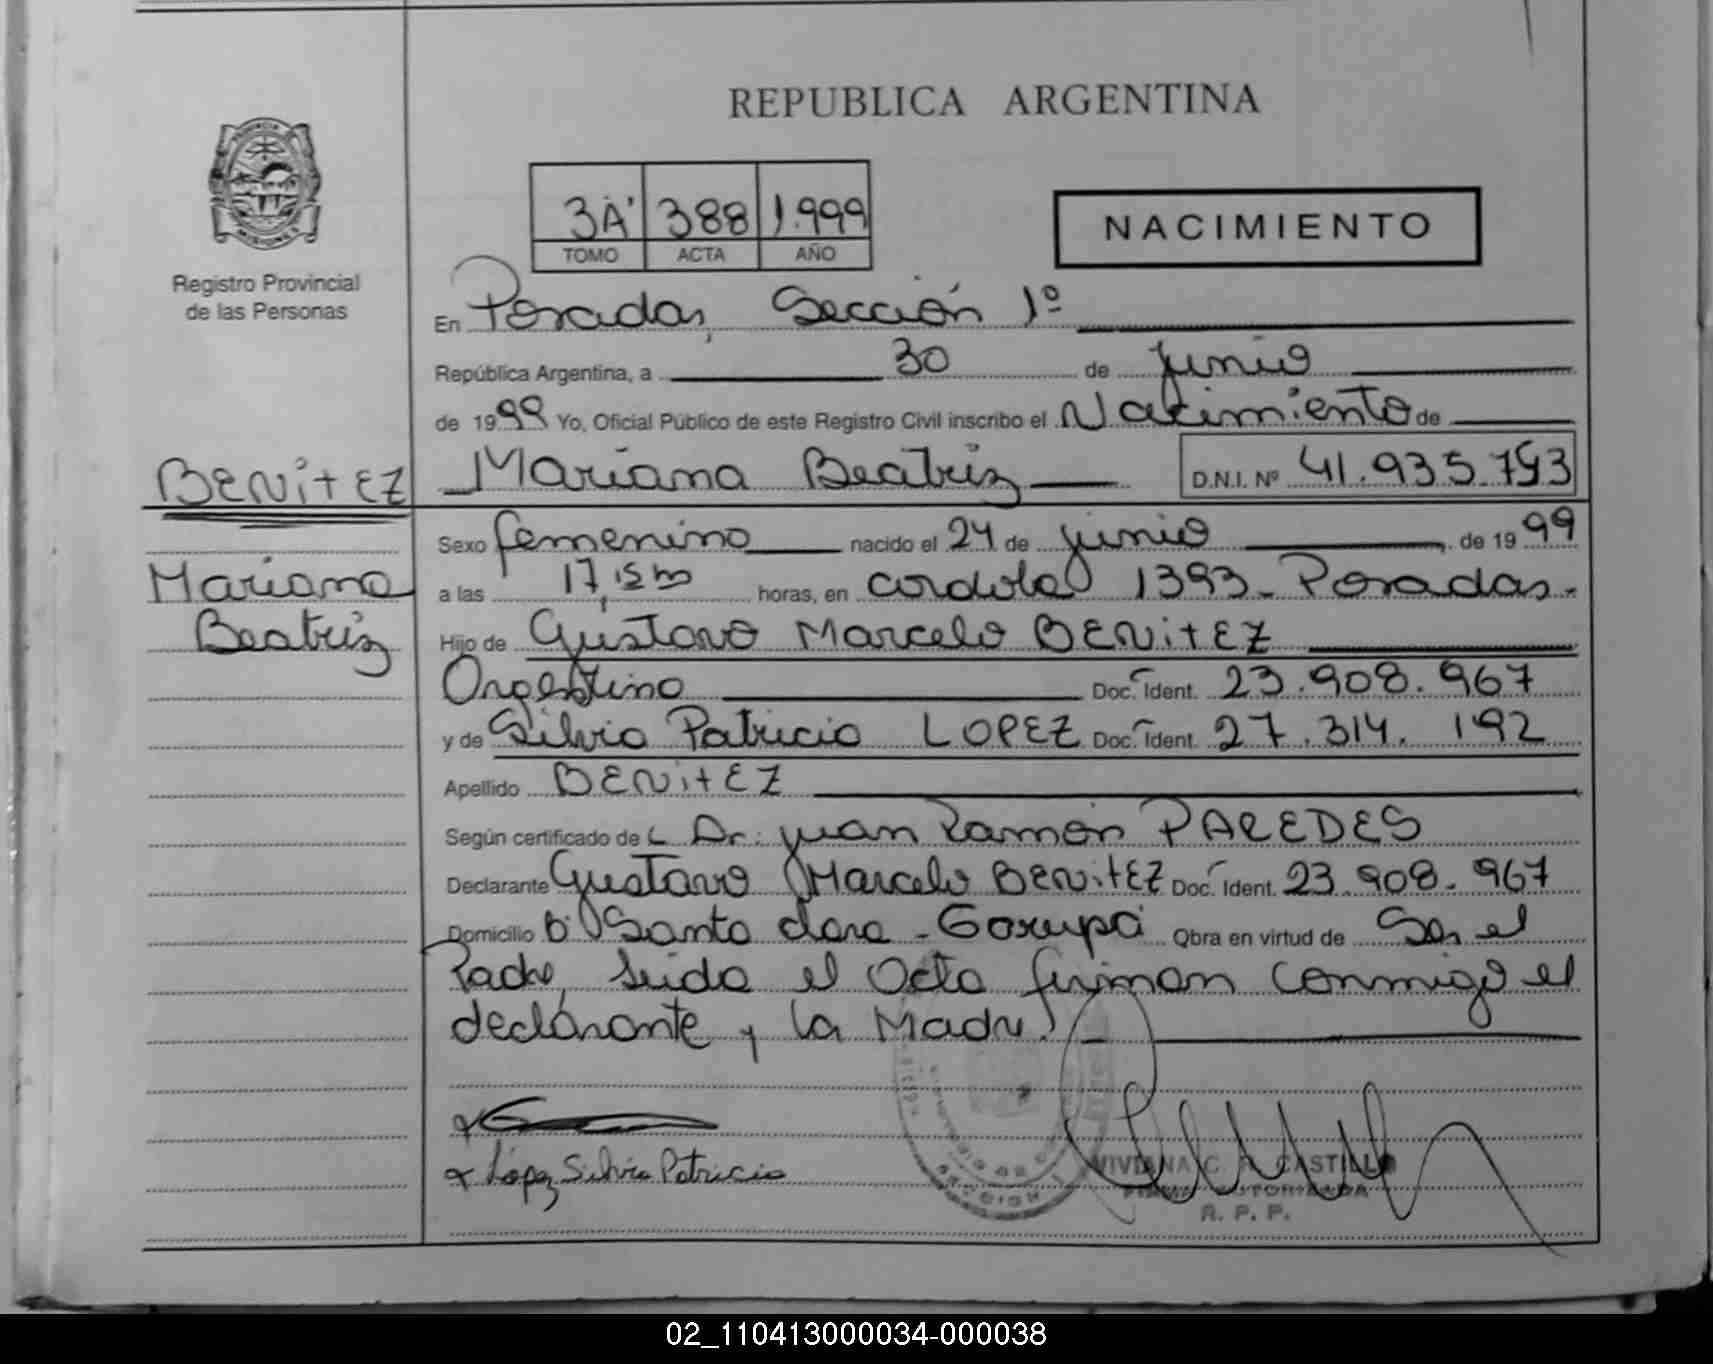 REPUBLICA ARGENTINA
PROVINCIA
MISIONES
Registro Provincial
de las Personas
3A' 388 1.999
TOMO ACTA AÑO
NACIMIENTO
En Posadas, Sección 1º
República Argentina, a 30 de junio
de 1999 Yo, Oficial Público de este Registro Civil inscribo el Nacimiento de
BENitEZ
Mariana Beatriz D.N.I. Nº 41.935.753
Mariana
Beatriz
Sexo femenino nacido el 24 de junio de 1999
a las 17,15 horas, en Cordoba 1393 - Posadas.-
Hijo de Gustavo Marcelo BENitEZ
Argentino Doc. Ident. 23.908.967
y de Silvia Patricia LOPEZ Doc. Ident. 27.314.192
Apellido BENitEZ
Según certificado de Dr. Juan Ramón PAREDES
Declarante Gustavo Marcelo BENitEZ Doc. Ident. 23.908.967
Domicilio Bº Santa Clara - Garupá Obra en virtud de Ser el
Padre, leida el Acta firman conmigo el
declarante y la Madre
López Silvia Patricia
VIVIANA C. R. CASTILLO
FIRMA AUTORIZADA
R. P. P.
02_110413000034-000038